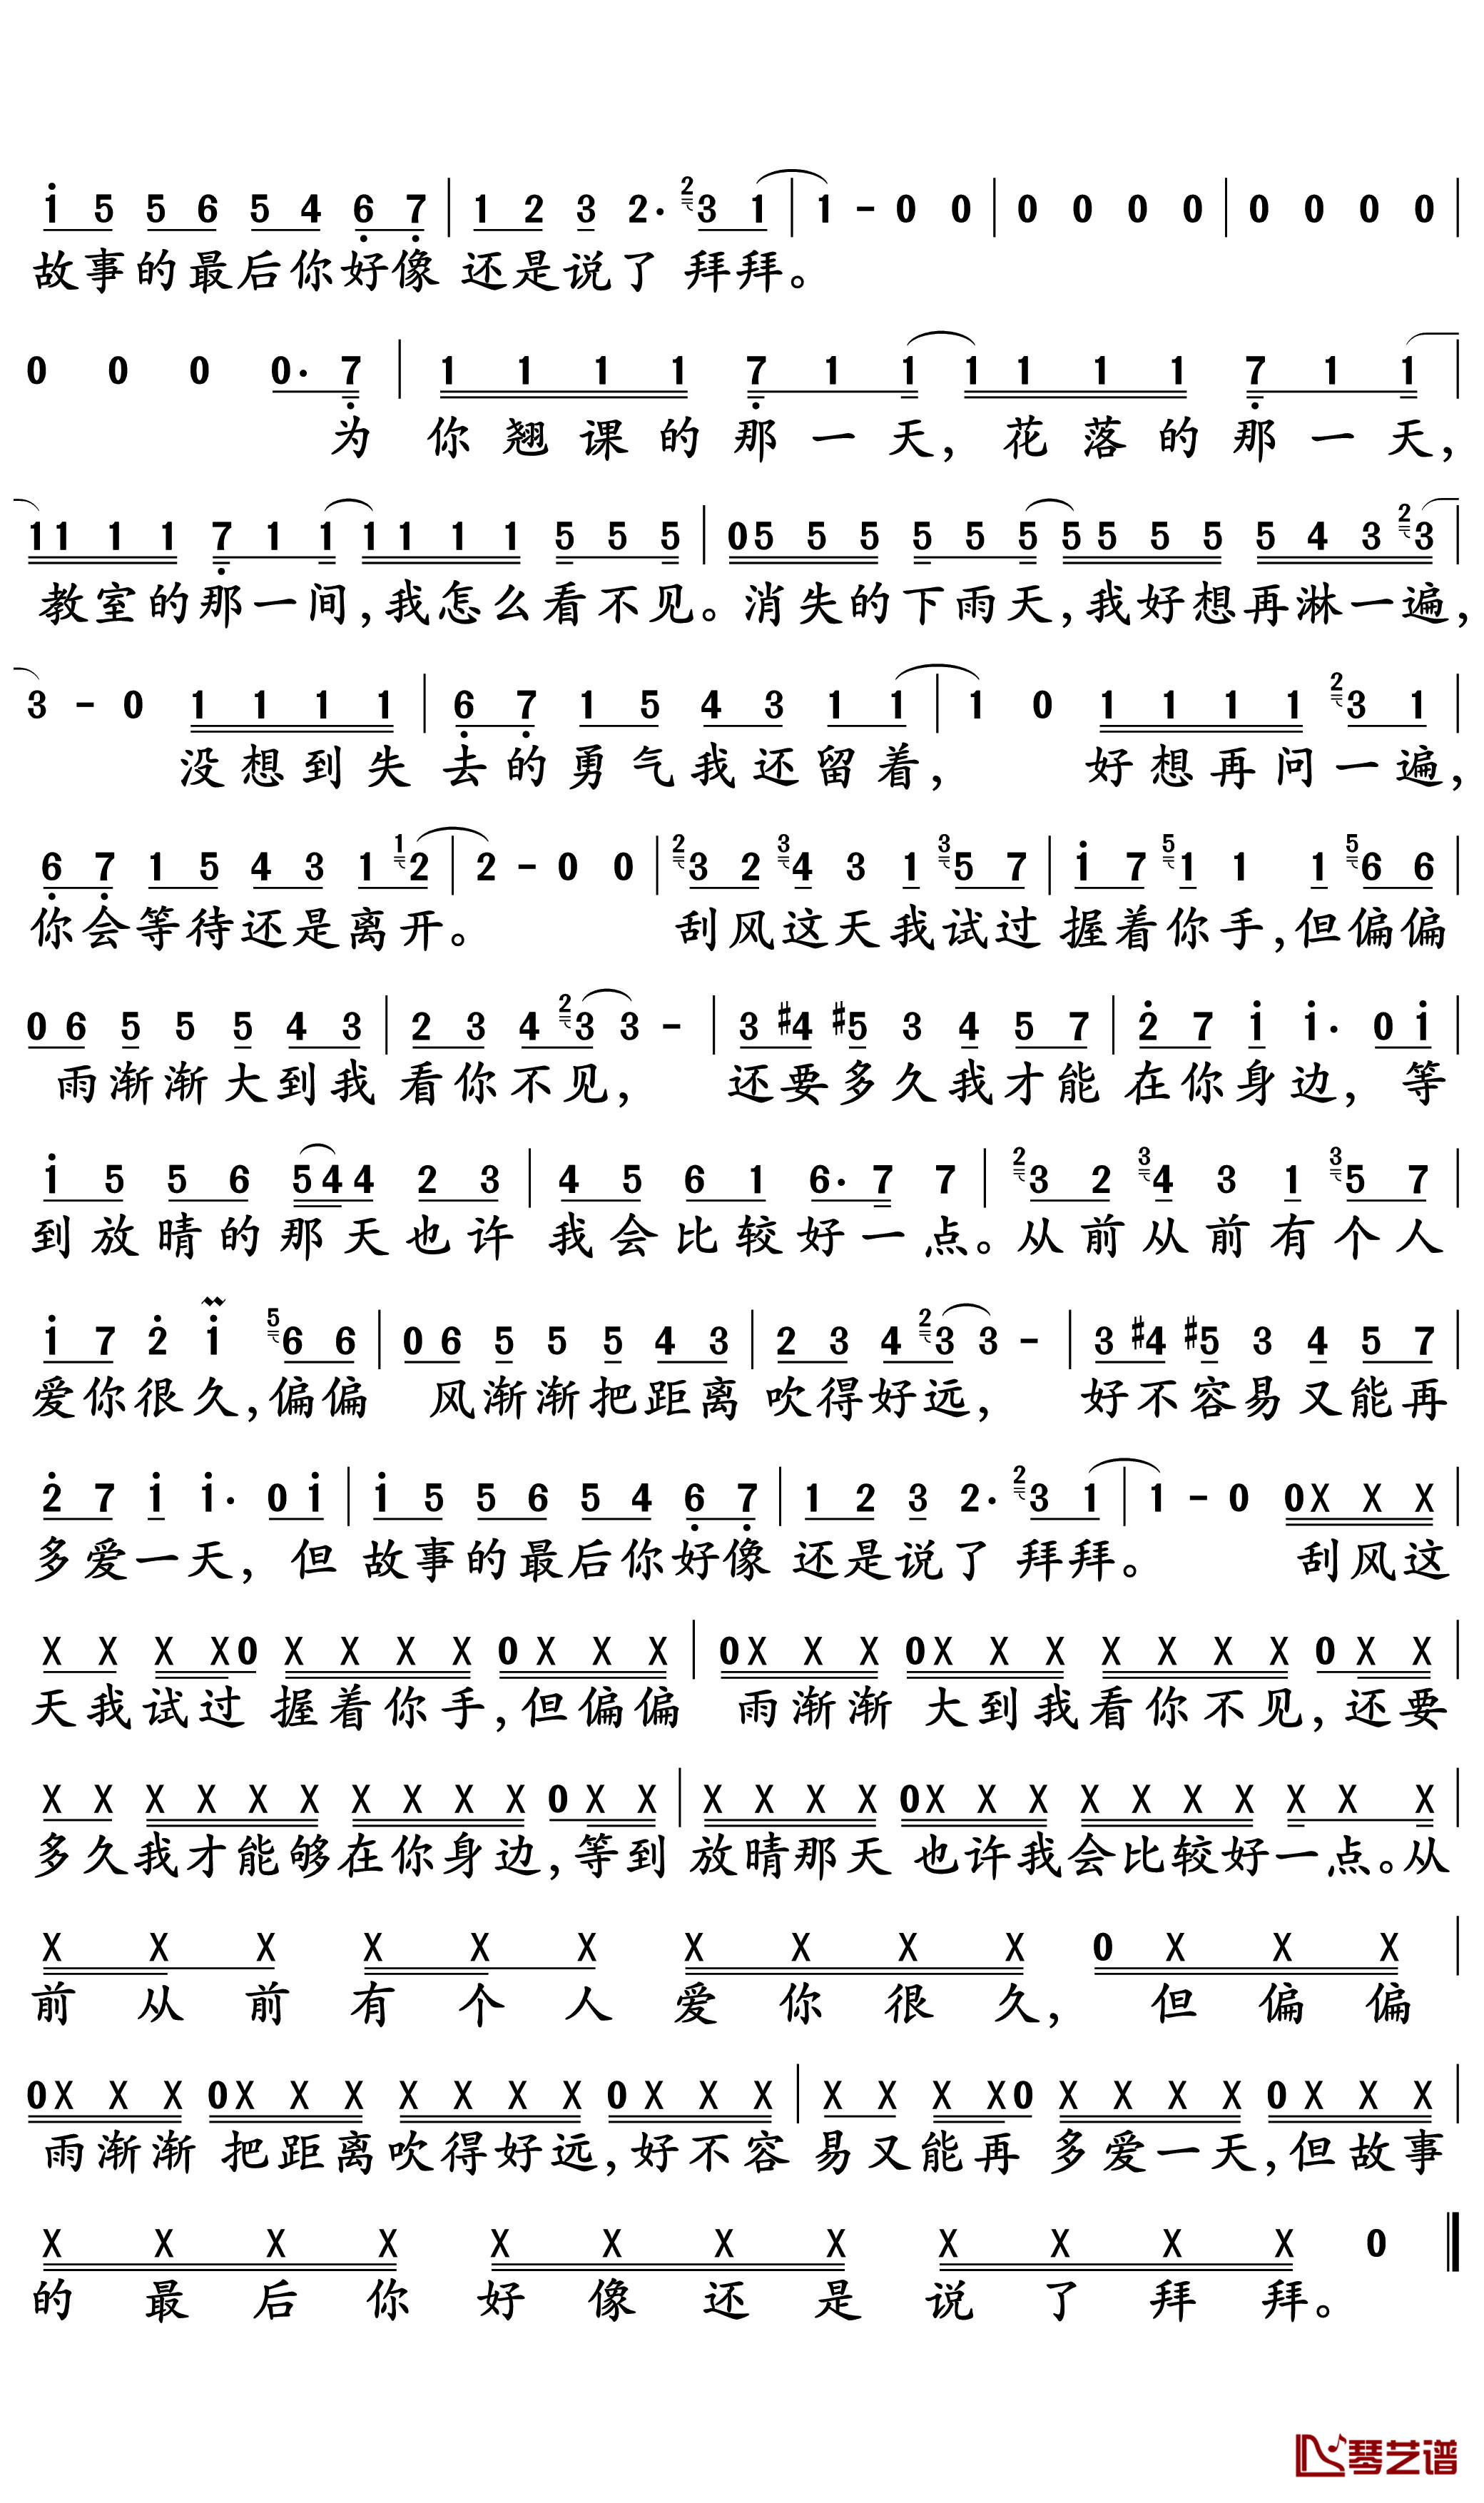 i 5 5 6 5 4 6 7 | 1 2 3 2· 2 3 1 | 1 - 0 0 | 0 0 0 0 | 0 0 0 0 |
故事的最后你好像 还是说了 拜拜。
0 0 0 0· 7 | 1 1 1 1 7 1 1 1 1 1 1 7 1 1 |
为 你翘课的那一天, 花落的那一天,
1 1 1 1 7 1 1 1 1 1 1 5 5 5 | 0 5 5 5 5 5 5 5 5 5 5 5 4 3 2 3 |
教室的那一间,我怎么看不见。消失的下雨天,我好想再淋一遍,
3 - 0 1 1 1 1 | 6 7 1 5 4 3 1 1 | 1 0 1 1 1 1 2 3 1 |
没想到失去的勇气我还留着, 好想再问一遍,
6 7 1 5 4 3 1 1 2 | 2 - 0 0 | 2 3 2 3 4 3 1 3 5 7 | i 7 5 1 1 1 5 6 6 |
你会等待还是离开。 刮风这天我试过 握着你手,但偏偏
0 6 5 5 5 4 3 | 2 3 4 2 3 3 - | 3 #4 #5 3 4 5 7 | 2 7 i i· 0 i |
雨渐渐大到我 看你不见, 还要多久我才能 在你身边, 等
i 5 5 6 5 4 4 2 3 | 4 5 6 1 6· 7 7 | 2 3 2 3 4 3 1 3 5 7 |
到放晴的那天也许 我会比较好一点。从前从前有个人
i 7 2 i 5 6 6 | 0 6 5 5 5 4 3 | 2 3 4 2 3 3 - | 3 #4 #5 3 4 5 7 |
爱你很久,偏偏 风渐渐把距离 吹得好远, 好不容易又能再
2 7 i i· 0 i | i 5 5 6 5 4 6 7 | 1 2 3 2· 2 3 1 | 1 - 0 0 X X X |
多爱一天, 但 故事的最后你好像 还是说了 拜拜。 刮风这
X X X X 0 X X X X 0 X X X | 0 X X X 0 X X X X X X X 0 X X |
天我试过 握着你手,但偏偏 雨渐渐 大到我看你不见,还要
X X X X X X X X X X 0 X X | X X X X 0 X X X X X X X X X X |
多久我才能够在你身边,等到 放晴那天 也许我会比较好一点。从
X X X X X X X X X X 0 X X X |
前从前有个人爱你很久, 但偏偏
0 X X X 0 X X X X X X X 0 X X X | X X X X 0 X X X X 0 X X X |
雨渐渐 把距离吹得好远,好不容 易又能再 多爱一天,但故事
X X X X X X X X X X X X 0
的最后你好像还是说了拜拜。
琴艺谱